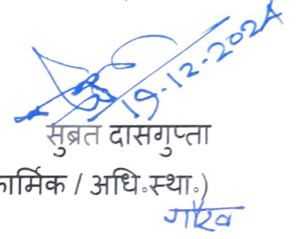 19-12-2024
सुब्रत दासगुप्ता
कार्मिक / अधि.स्था.)
गौरव